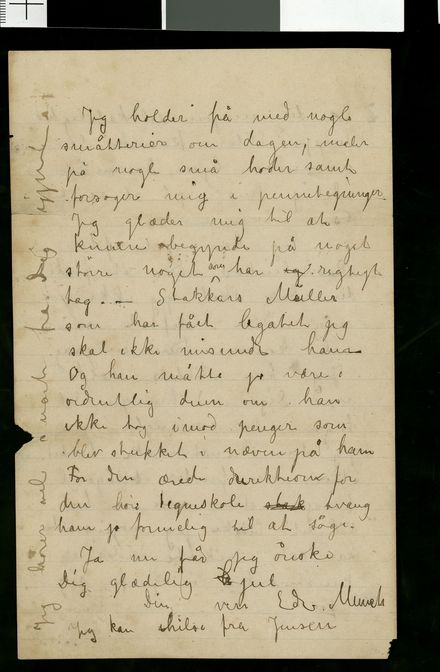 Jeg holder på med nogle
småtterier om dagen, maler
på nogle små hoder samt
forsøger mig i pennetegninger.
Jeg glæder mig til at
kunne begynde på noget
større noget som har rigtigt
tag. — Stakkars Müller
som har fået legatet jeg
skal ikke misunde ham
Og han måtte jo være
ordentlig dum om han
ikke tog imod penger som
blev stukket i næven på ham
For den ærede direktion for
den høie tegneskole tvang
ham jo formelig til at søge.
Ja nu får jeg ønske
Dig glædelig jul
Din ven Edv. Munch
Jeg kan hilse fra Jensen
Jeg hører vel snart fra Dig